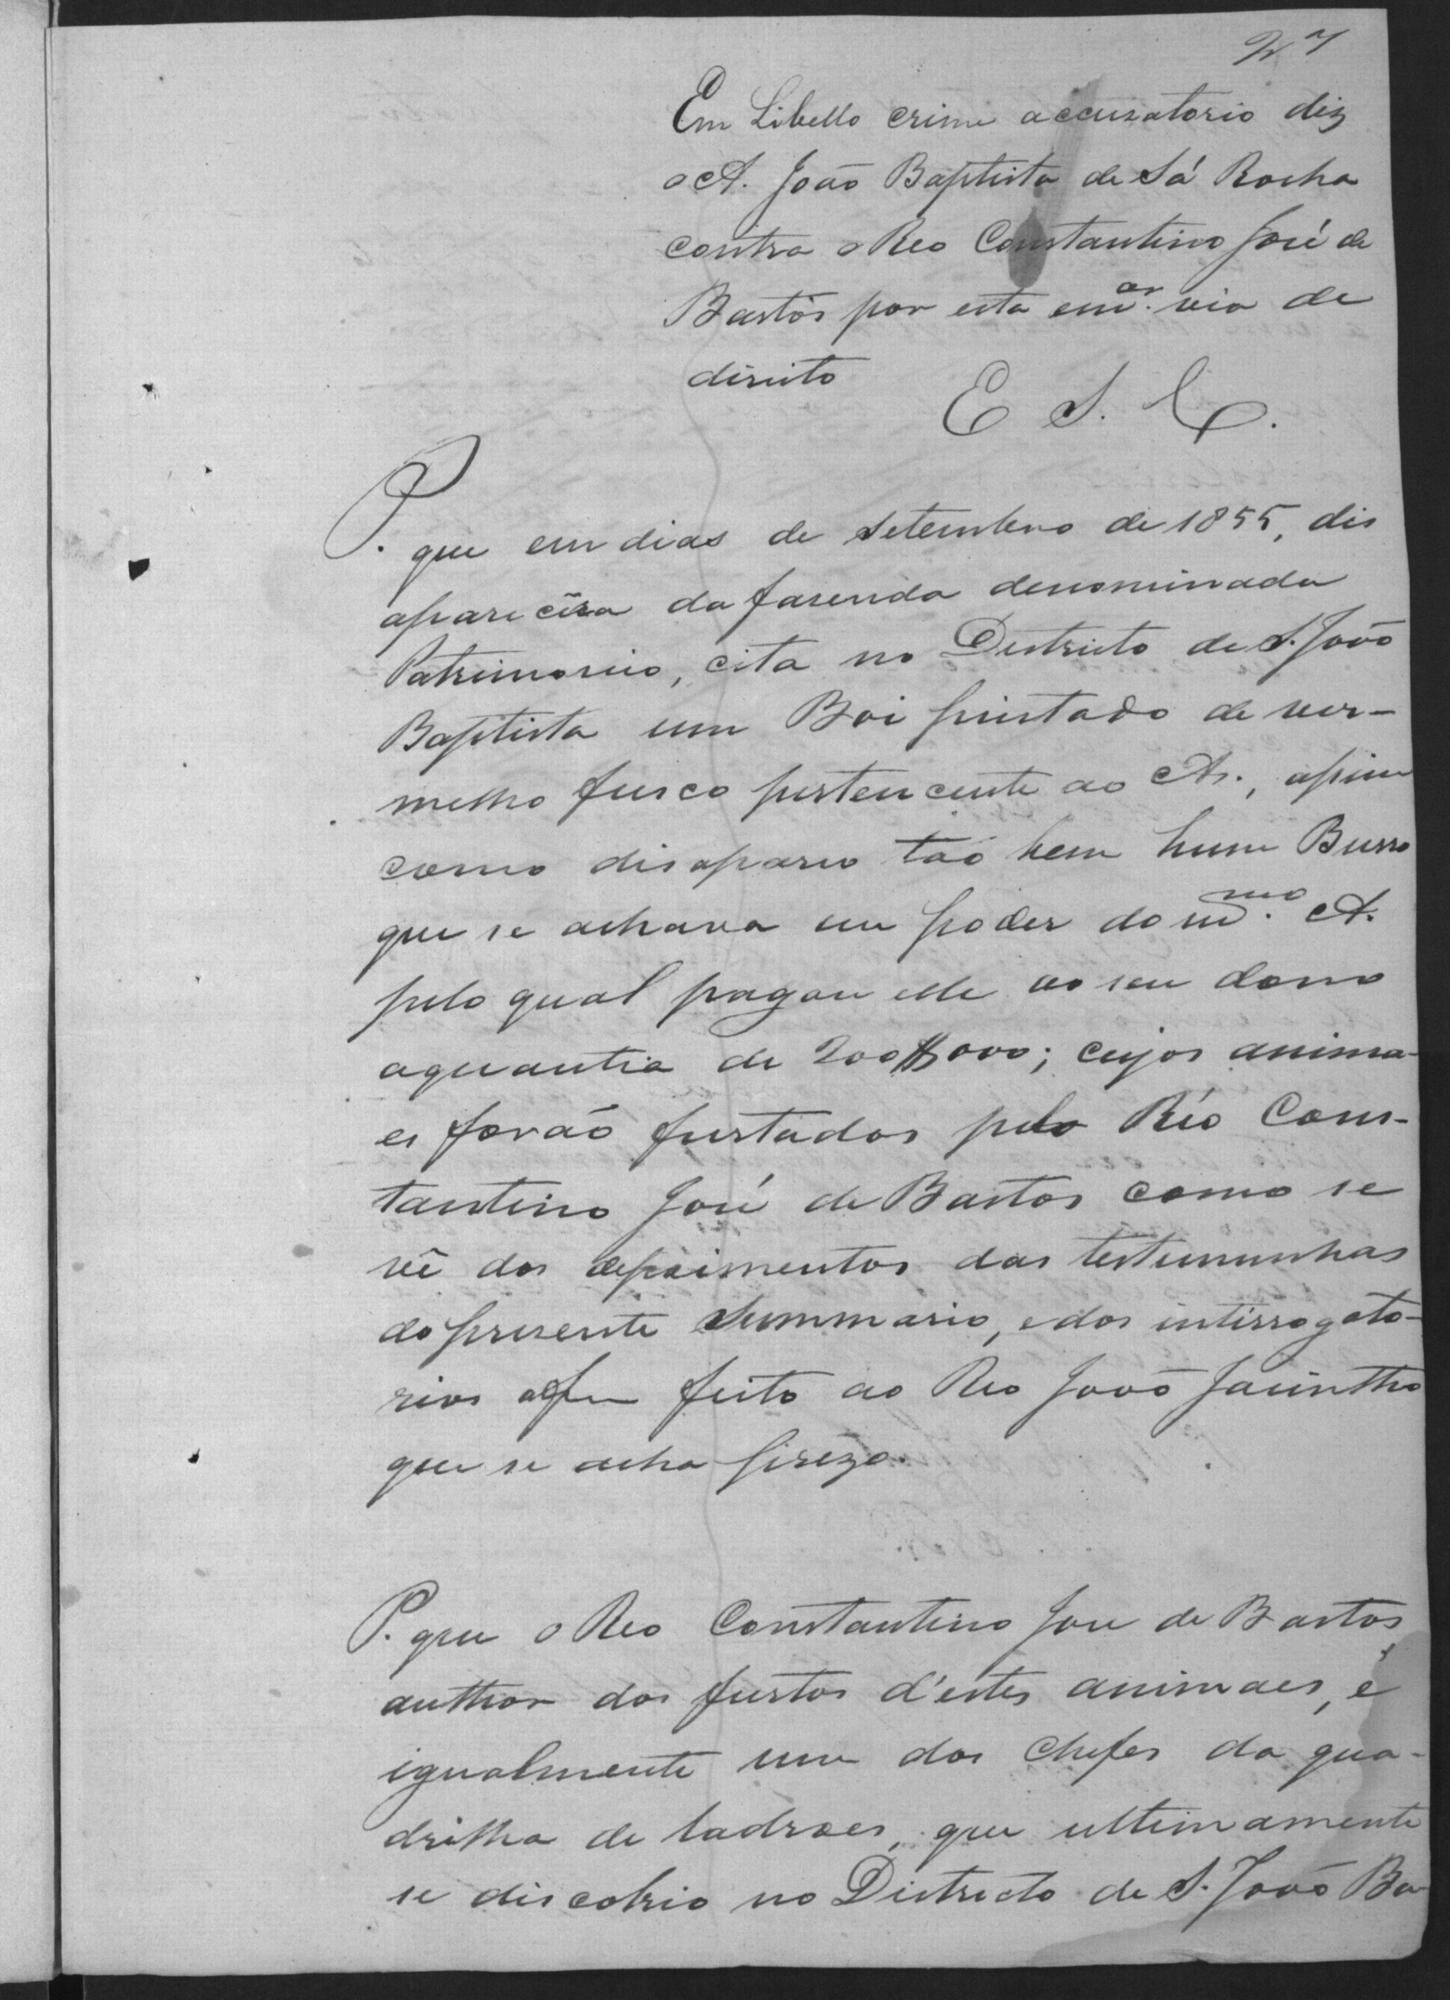 27
Em Libello crime accuzatorio diz
o A. João Baptista de Sá Rocha
contra o Reo Constantino José de
Bastos por esta em^or. via de
direito
E S. C.
P. que em dias de Setembro de 1855, dis
aparecera da fazenda denominada
Patrimonio, cita no Destricto de S. João
Baptista um Boi pintado de ver-
melho fusco pertencente ao A., assim
como disapareo tão bem hum Burro
que se achava em poder do m^mo. A.
pelo qual pagou elle ao seu dono
aquantia de 200$000; cujos anima-
es forão furtados pelo Réo Cons-
tantino José de Bastos como se
vê dos depoimentos das testemunhas
do presente Summario, e dos intirrogato-
rios feito ao Reo João Jacintho
que se acha prezo.
P. que o Reo Constantino Jose de Bastos
author dos furtos d'estes animaes, é
igualmente um dos Chefes da qua-
drilha de ladroes, que ultimamente
se discobrio no Districto de S. João Ba-